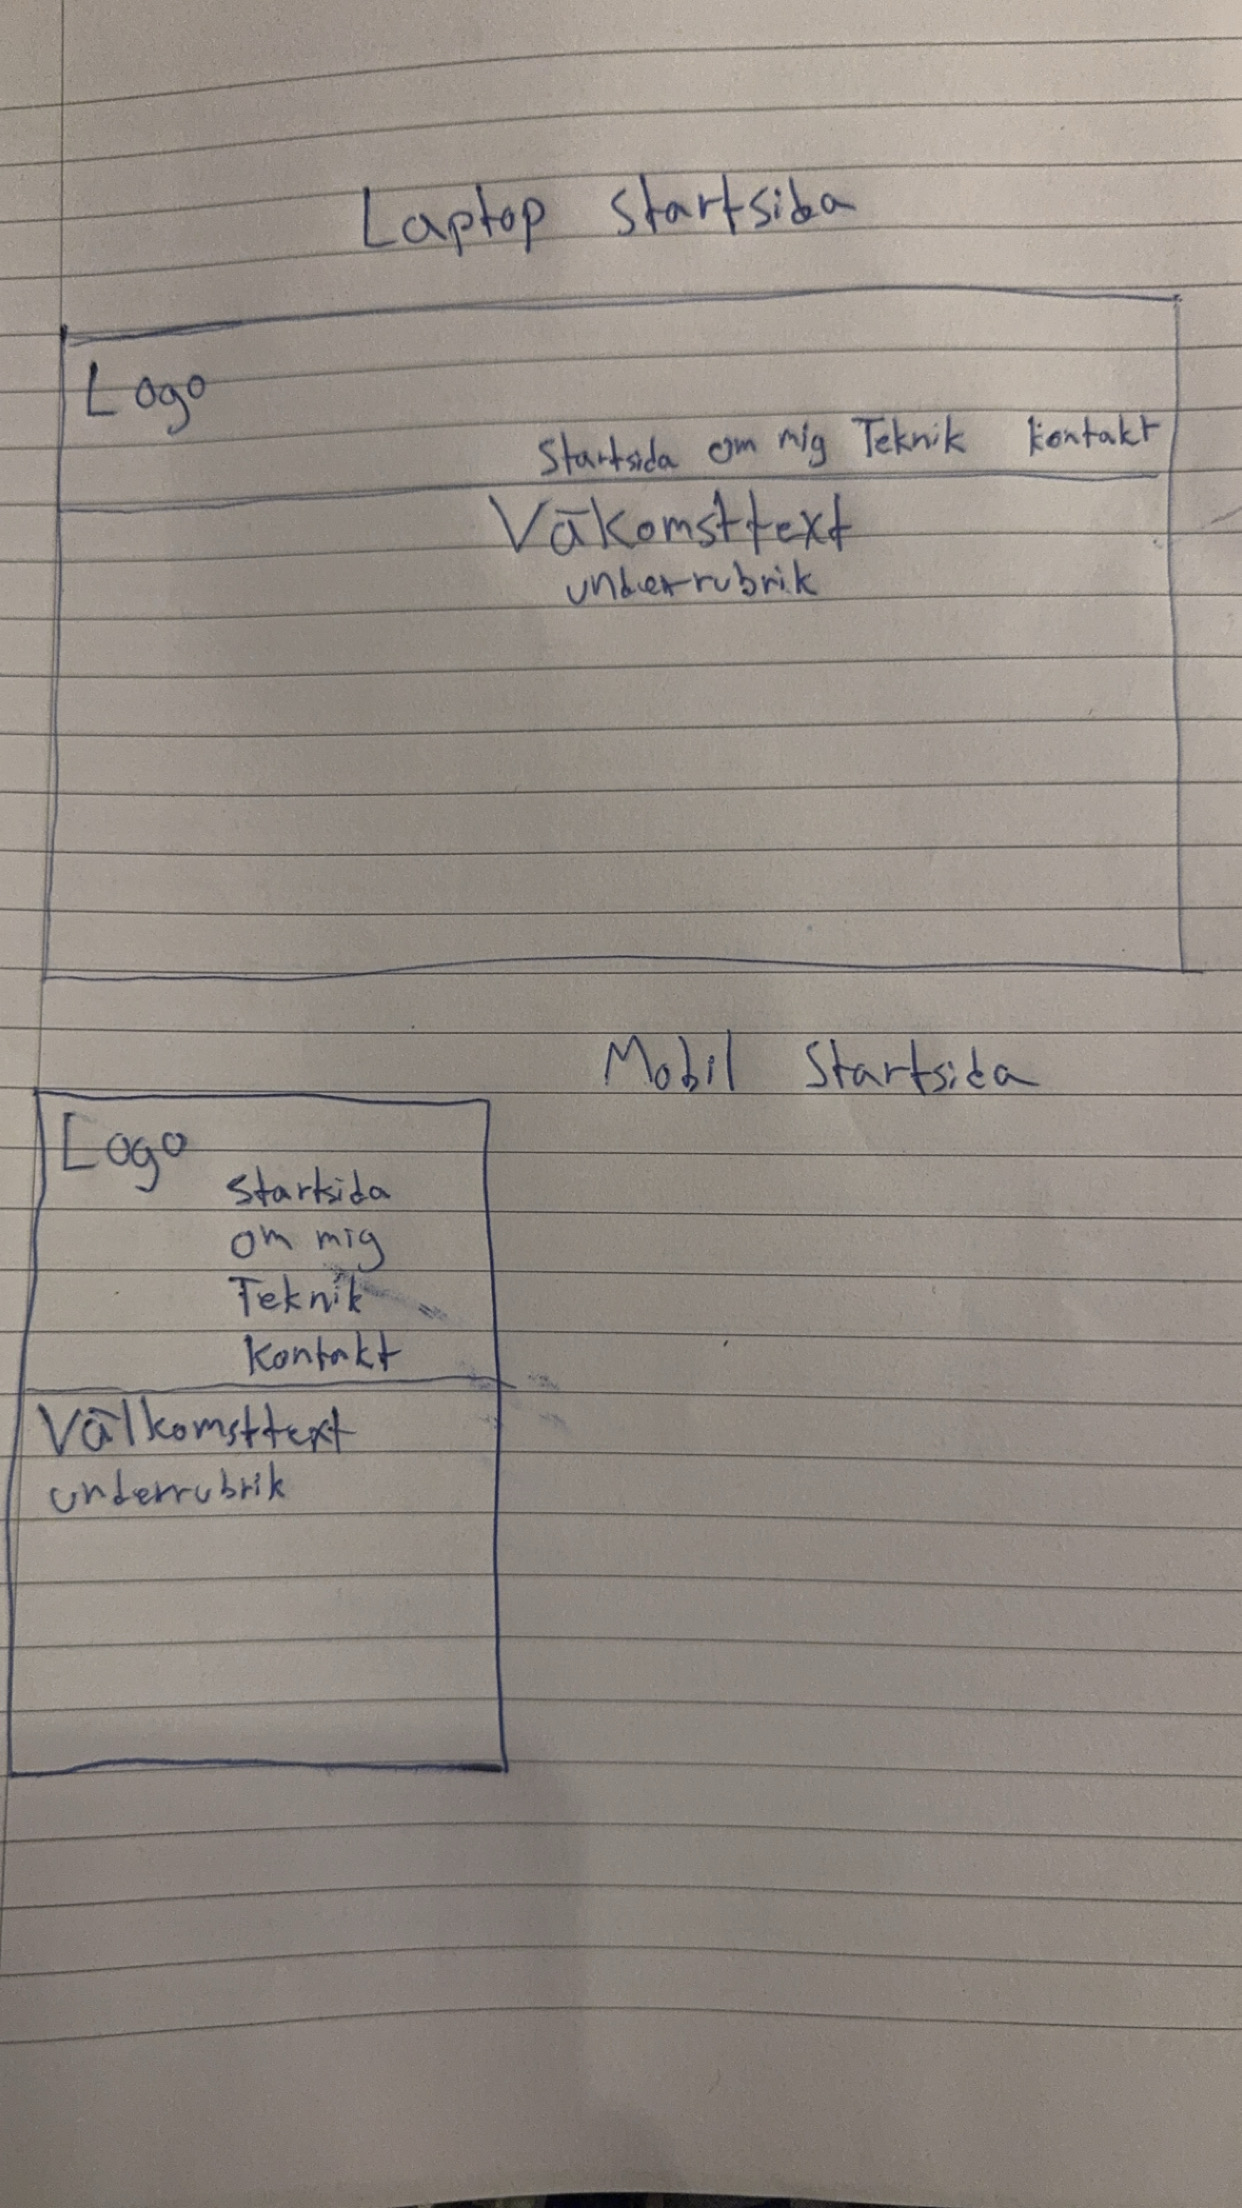 Laptop startsida
Logo
Startsida om mig Teknik kontakt
Väkomsttext
underrubrik
Mobil Startsida
Logo
Startsida
om mig
Teknik
kontakt
Välkomsttext
underrubrik